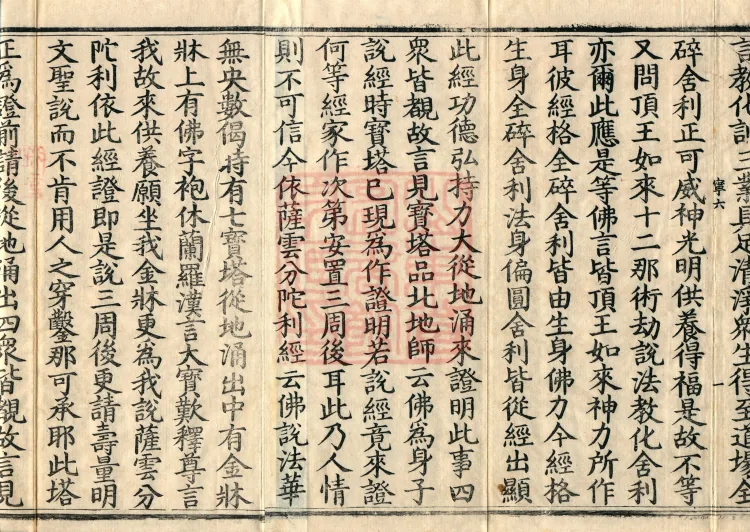 言教化訓三業具足清淨衆生得至道場全
碎舍利正可威神光明供養得福是故不等
寧六
又問頂王如來十二那術劫說法教化舍利
亦爾此應是等佛言皆頂王如來神力所作
耳彼經格全碎舍利皆由生身佛力今經格
生身全碎舍利法身偏圓舍利皆從經出顯
此經功德弘持力大從地涌來證明此事四
衆皆覩故言見寶塔品北地師云佛爲身子
說經時寶塔已現爲作證明若說經竟來證
何等經家作次第安置三周後耳此乃人情
則不可信今依薩雲分陀利經云佛說法華
無央數偈時有七寶塔從地涌出中有金牀
牀上有佛字袍休蘭羅漢言大寶歎釋尊言
我故來供養願坐我金牀更爲我說薩雲分
陀利依此經證即是說三周後更請壽量明
文聖說而不肯用人之穿鑿那可承耶此塔
正爲證前請後從地涌出四衆皆覩故言見